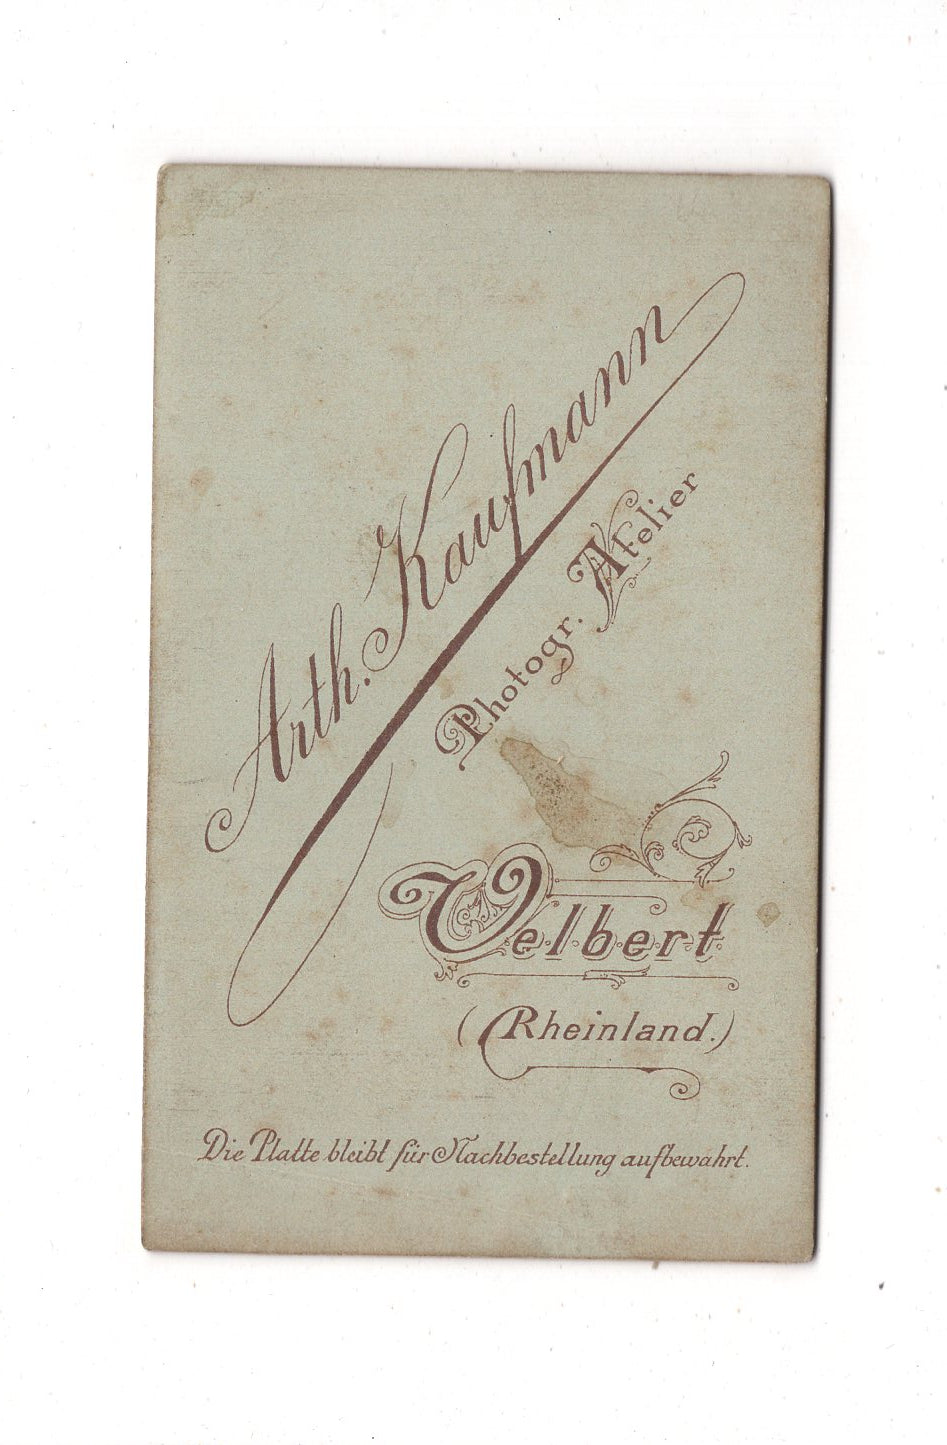 Arth. Kaufmann
Photogr. Atelier
Velbert
(Rheinland.)
Die Platte bleibt für Nachbestellung aufbewahrt.